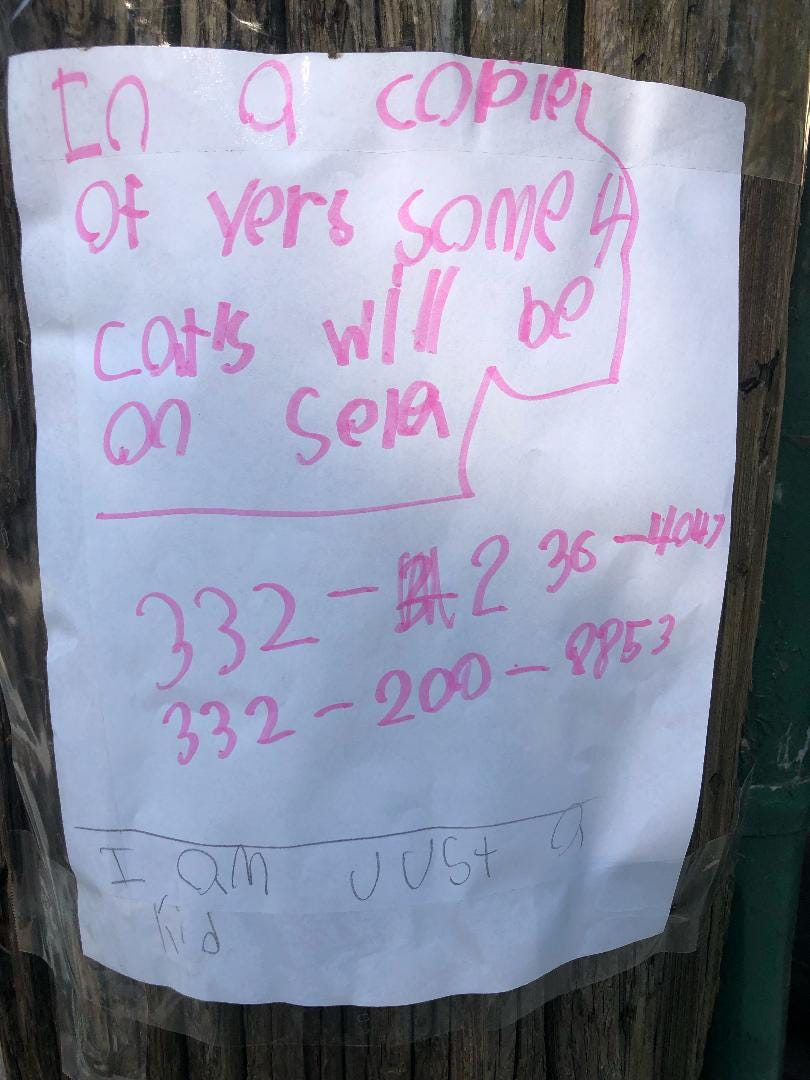 In a copiel
of yers some 4
cats will be
on sela
332-236-4047
332-200-8853
I am Just a
kid